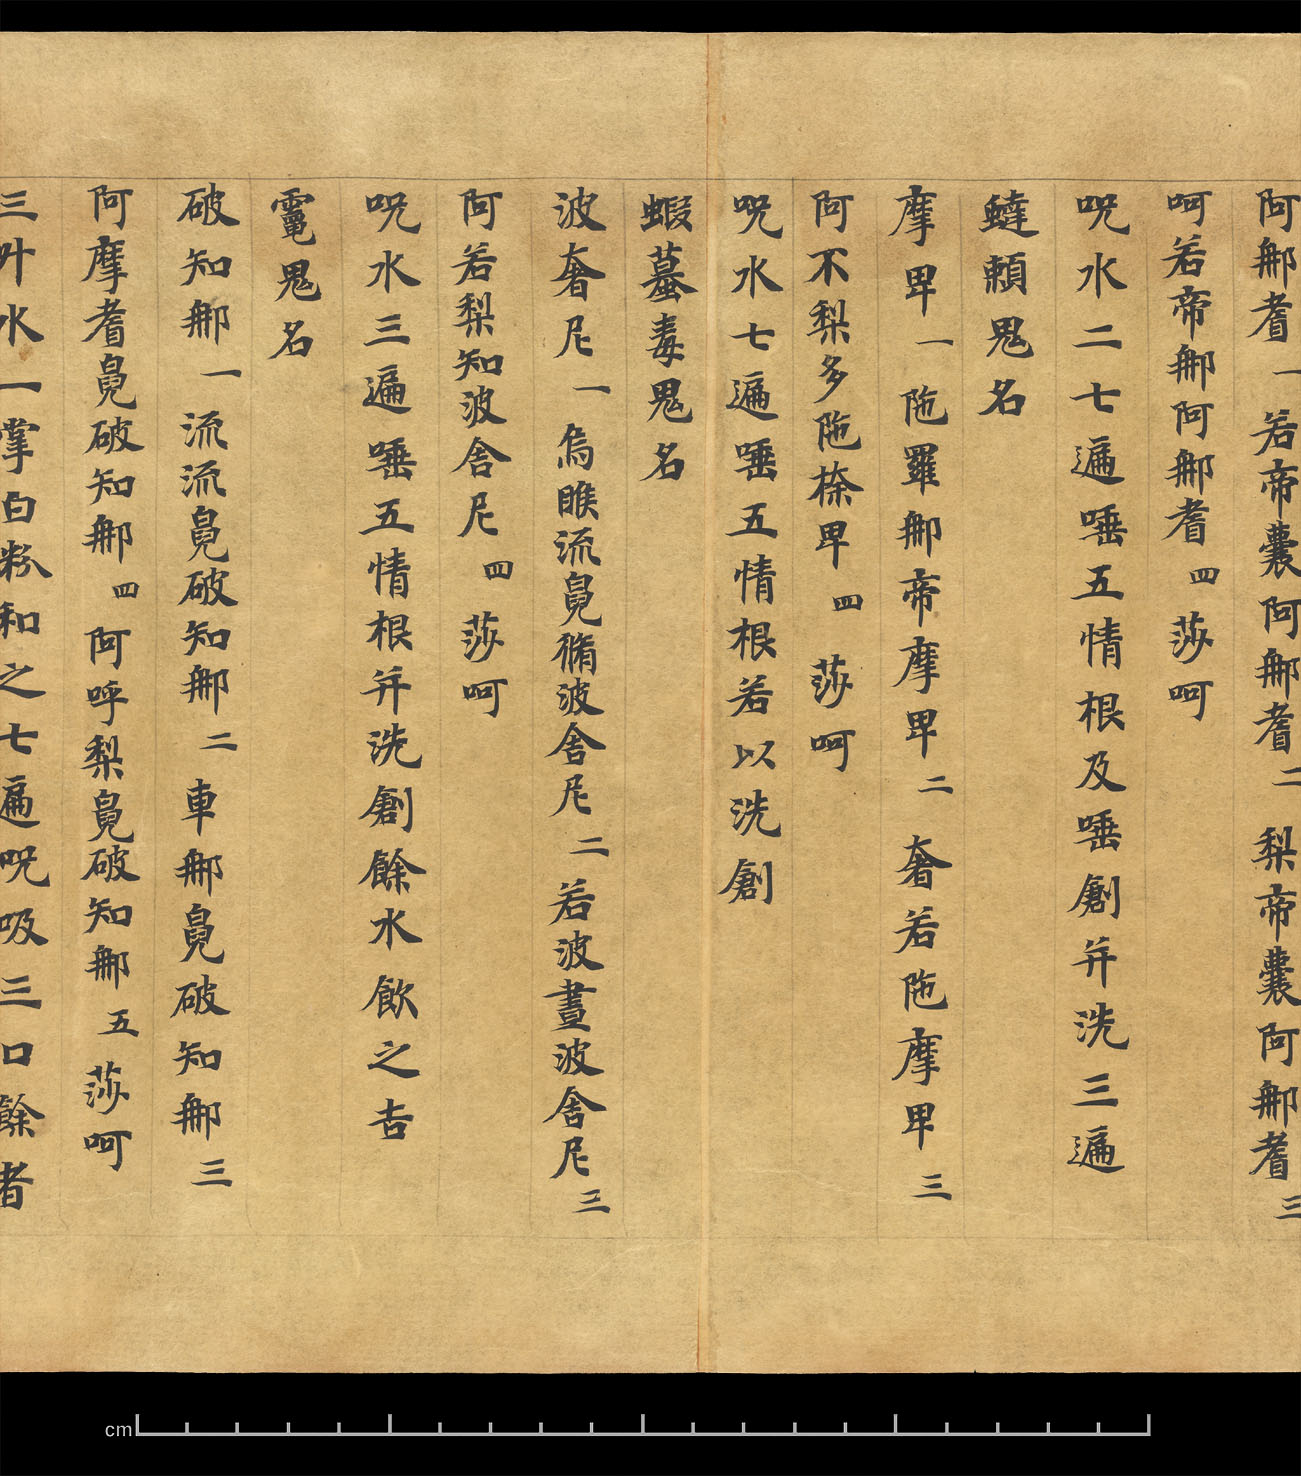 阿𨙻耆一若帝囊阿𨙻耆二梨帝囊阿𨙻耆三
呵若帝𨙻阿𨙻耆四莎呵
呪水二七遍唾五情根及唾創并洗三遍
鬼名
摩卑一陁羅𨙻帝摩卑二奢若陁摩卑三
阿不梨多陁㮈卑四莎呵
呪水七遍唾五情根若以洗創
蝦蟇毒鬼名
波奢尼一烏睺流㝹脩波舍尼二若波晝波舍尼三
阿若梨知波舍尼四莎呵
呪水三遍唾五情根并洗創餘水飲之吉
鬼名
破知𨙻一流流㝹破知𨙻二車𨙻㝹破知𨙻三
阿摩耆㝹破知𨙻四阿呼梨㝹破知𨙻五莎呵
三升水一掌白粉和之七遍呪吸三口餘者